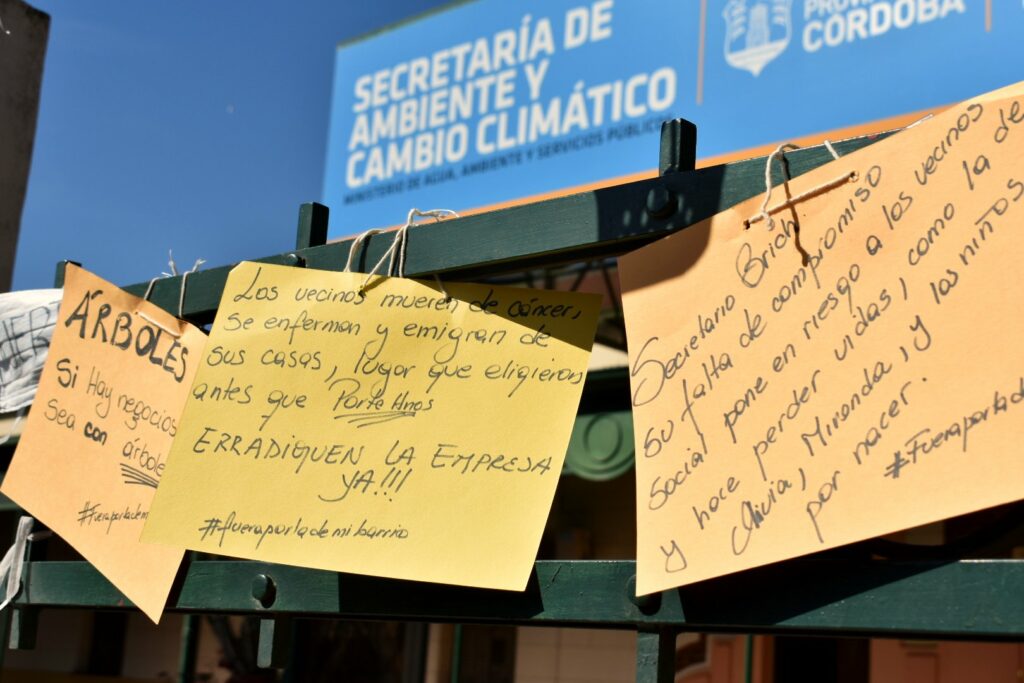 SECRETARÍA DE
AMBIENTE Y
CAMBIO CLIMÁTICO
MINISTERIO DE AGUA, AMBIENTE Y SERVICIOS PÚBLICOS
CÓRDOBA
ÁRBOLES
Si Hay negocios
Sea con árboles
Los vecinos mueren de cáncer,
se enferman y emigran de
sus casas, lugar que eligieron
antes que Porta Hnos
ERRADIQUEN LA EMPRESA
YA!!!
#fueraportademibarrio
Secretario Brich
su falta de compromiso
social pone en riesgo a los vecinos
y hace perder vidas, como la de
Miranda, y los niños
por nacer.